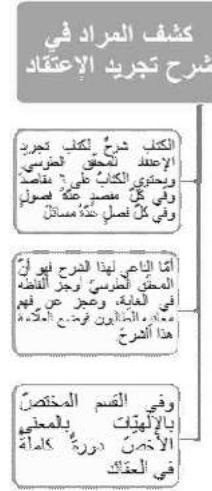 كشف المراد في
شرح تجريد الإعتقاد
الكتاب شرحٌ لكتاب تجريد
الإعتقاد للمحقق الطوسيّ
ويحتوي الكتابُ على ٦ مقاصدَ
وفي كلّ مقصدٍ عدّةُ فصولٍ
وفي كلّ فصلٍ عدّةُ مسائلَ
أمّا الداعي لهذا الشرح فهو أنّ
المحقق الطوسيّ أوجز ألفاظه
في الغاية، وعجز عن فهم
معانيه الطالبون فوضع العلّامة
هذا الشرحَ
وفي القسم المختصّ
بالإلهيّات بالمعنى
الأخصّ دورةٌ كاملةٌ
في العقائد